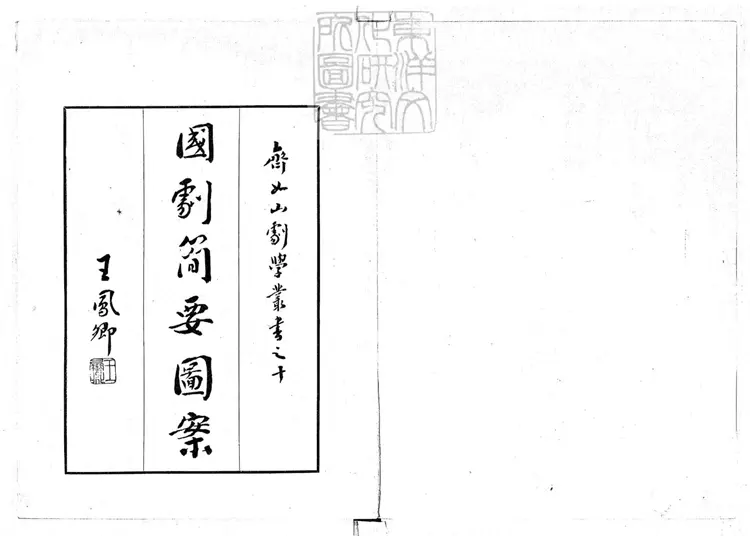 東洋文
化研究
所圖書
齊如山劇學叢書之十
國劇簡要圖案
王鳳卿